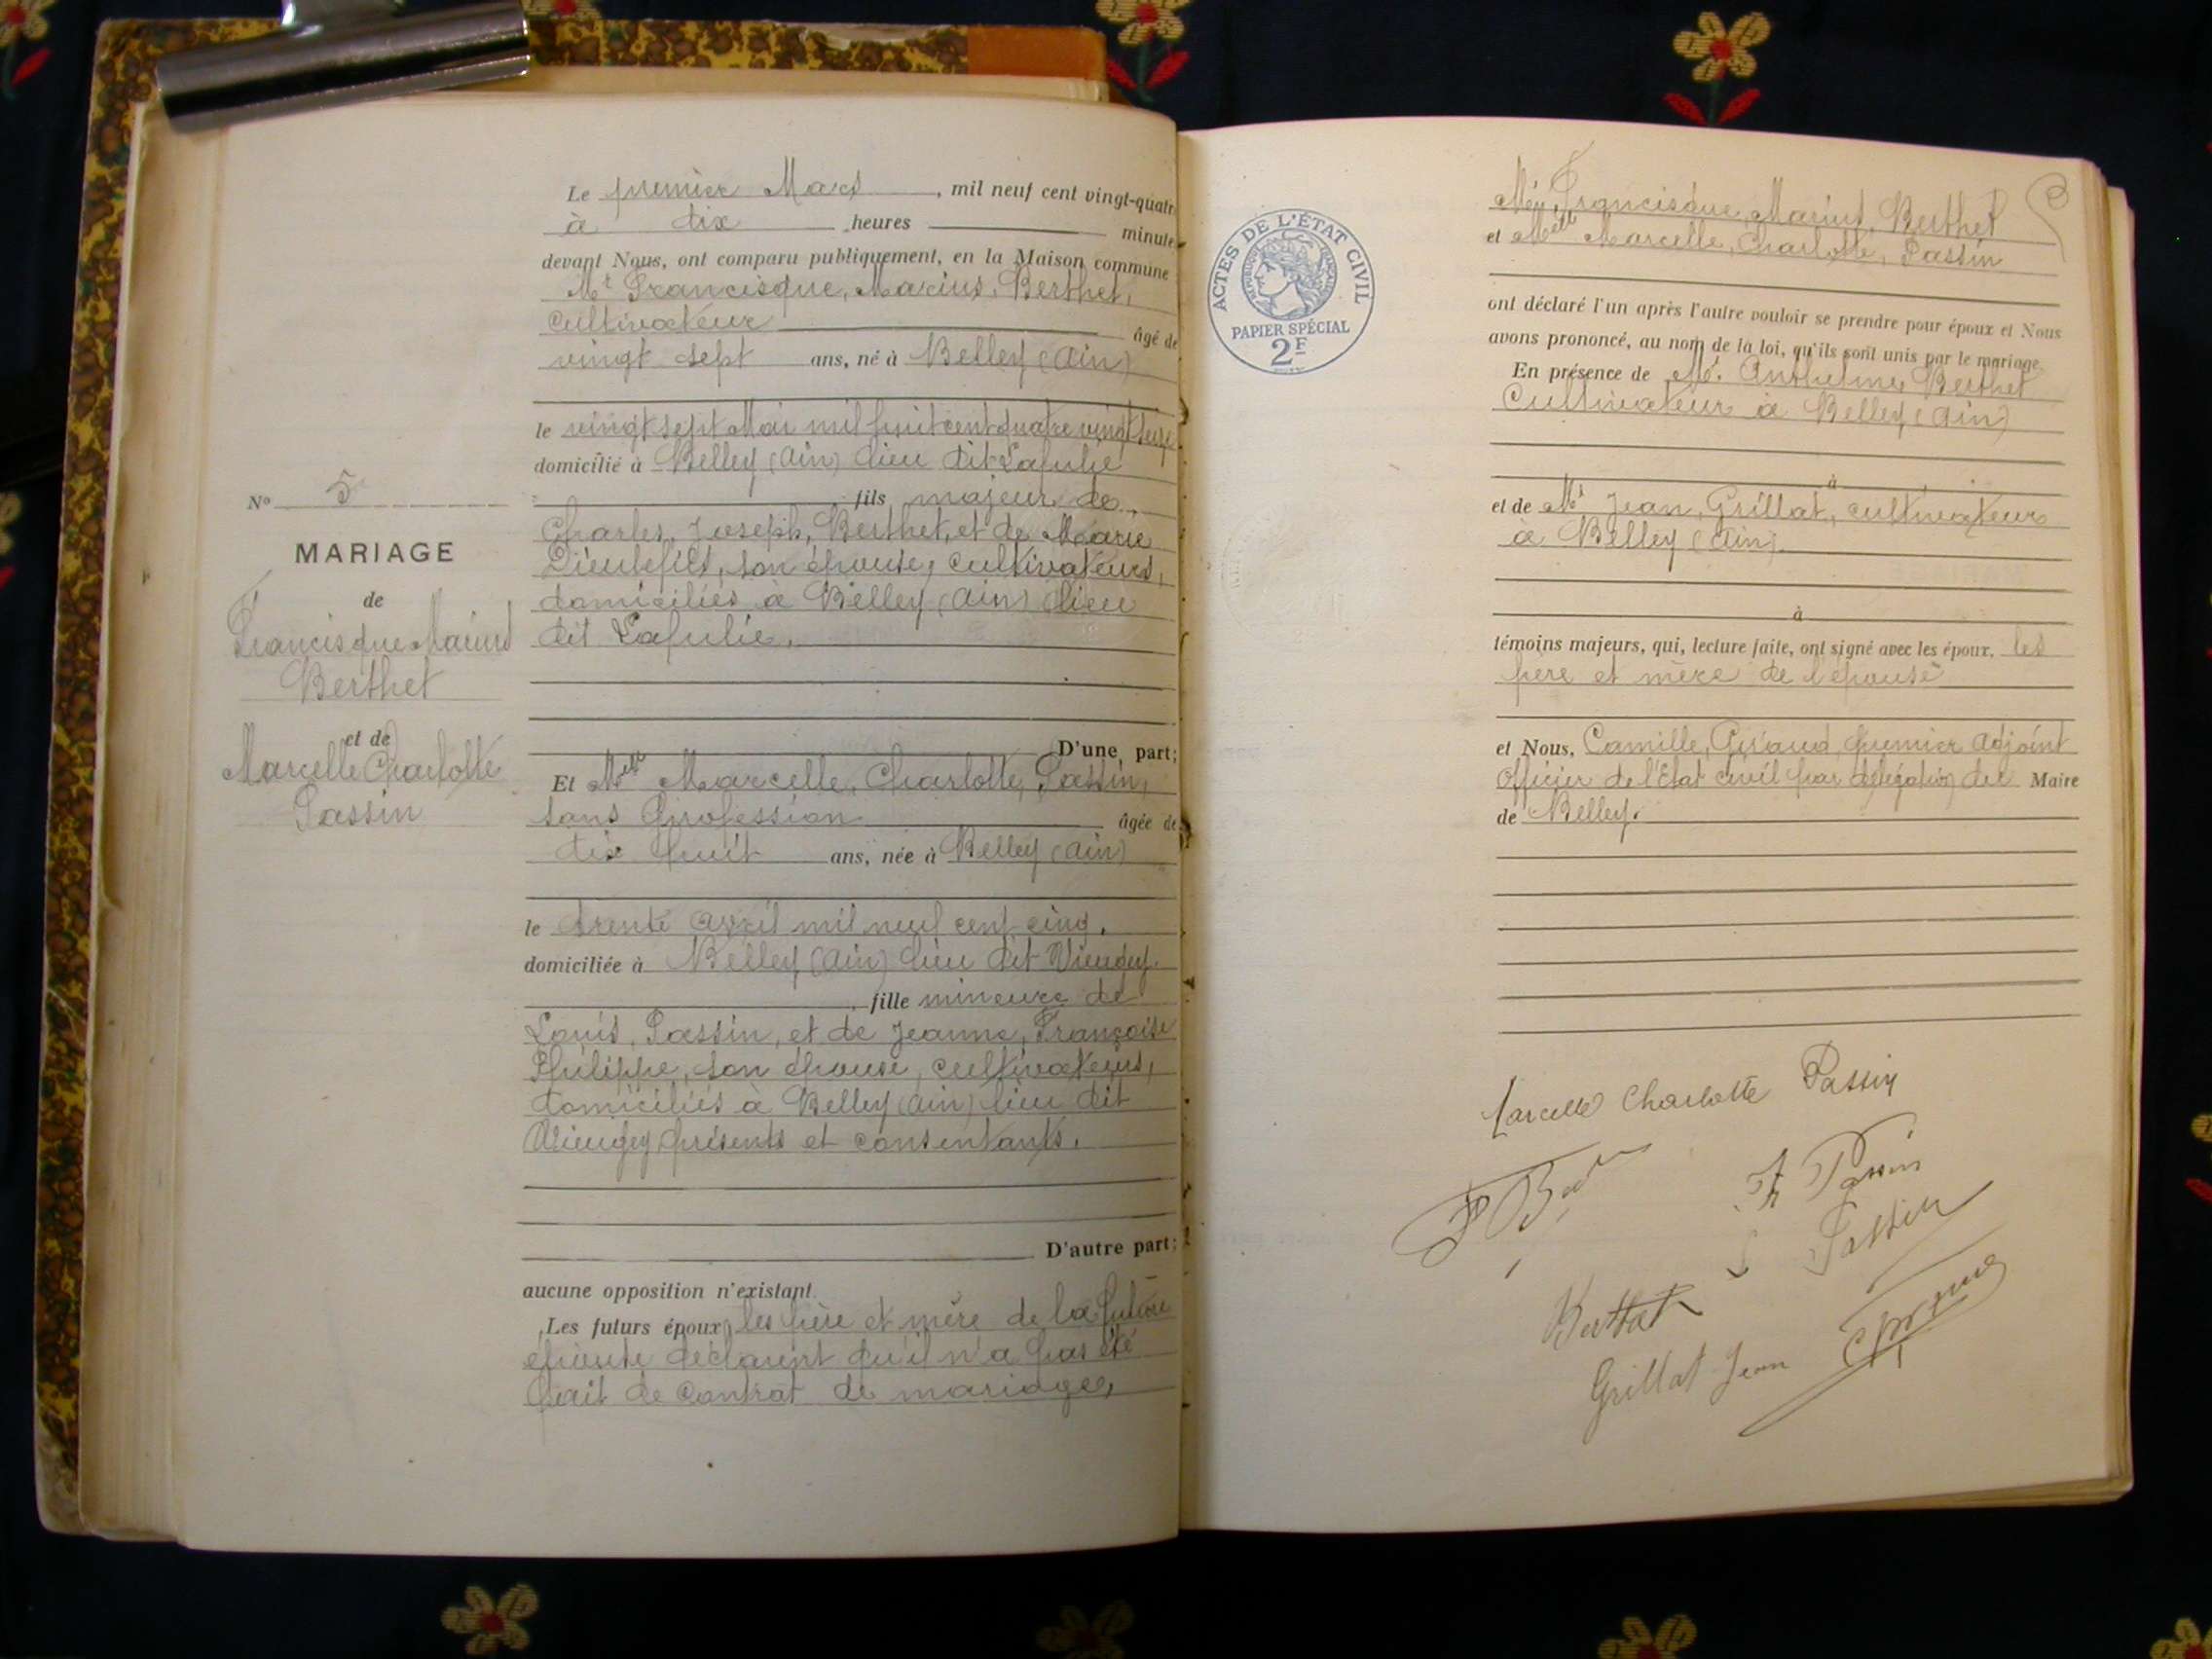 Le premier Mars, mil neuf cent vingt-quatr
à dix heures minute
devant Nous, ont comparu publiquement, en la Maison commune
Mr Francisque, Marius, Berthet,
cultivateur âgé de
vingt sept ans, né à Belley (Ain)
le vingt sept Mai mil huit cent quatre vingt seize
domicilié à Belley (Ain) lieu dit Lafulie
fils majeur de
Charles, Joseph, Berthet, et de Marie
Dieulefils, son épouse, cultivateurs,
domiciliés à Belley (Ain) lieu
dit Lafulie.
D'une part;
Et Melle Marcelle, Charlotte, Passin,
sans profession âgée de
dix huit ans, née à Belley (Ain)
le trente avril mil neuf cent cinq.
domiciliée à Belley (Ain) lieu dit Vieugey.
fille mineure de
Louis, Passin, et de Jeanne, Françoise
Philippe, son épouse, cultivateurs,
domiciliés à Belley (Ain) lieu dit
Vieugey, présents et consentants.
D'autre part;
aucune opposition n'existant.
Les futurs époux, les père et mère de la future
épouse déclarent qu'il n'a pas été
fait de contrat de mariage,
No 5
MARIAGE
de
Francisque Marius
Berthet
et de
Marcelle Charlotte
Passin
ACTES DE L'ÉTAT CIVIL
RÉPUBLIQUE FRANÇAISE
PAPIER SPÉCIAL
2F
Francisque, Marius, Berthet
et Melle Marcelle, Charlotte, Passin
ont déclaré l'un après l'autre vouloir se prendre pour époux et Nous
avons prononcé, au nom de la loi, qu'ils sont unis par le mariage.
En présence de Mr. Anthelme Berthet
cultivateur à Belley (Ain)
à
et de Mr Jean, Grillat, cultivateur
à Belley (Ain)
à
témoins majeurs, qui, lecture faite, ont signé avec les époux, les
père et mère de l'épouse
et Nous, Camille, Giraud, premier adjoint
Officier de l'Etat civil par délégation du Maire
de Belley.
Marcelle Charlotte Passin
Passin
Passin
Berthet
Grillat Jean